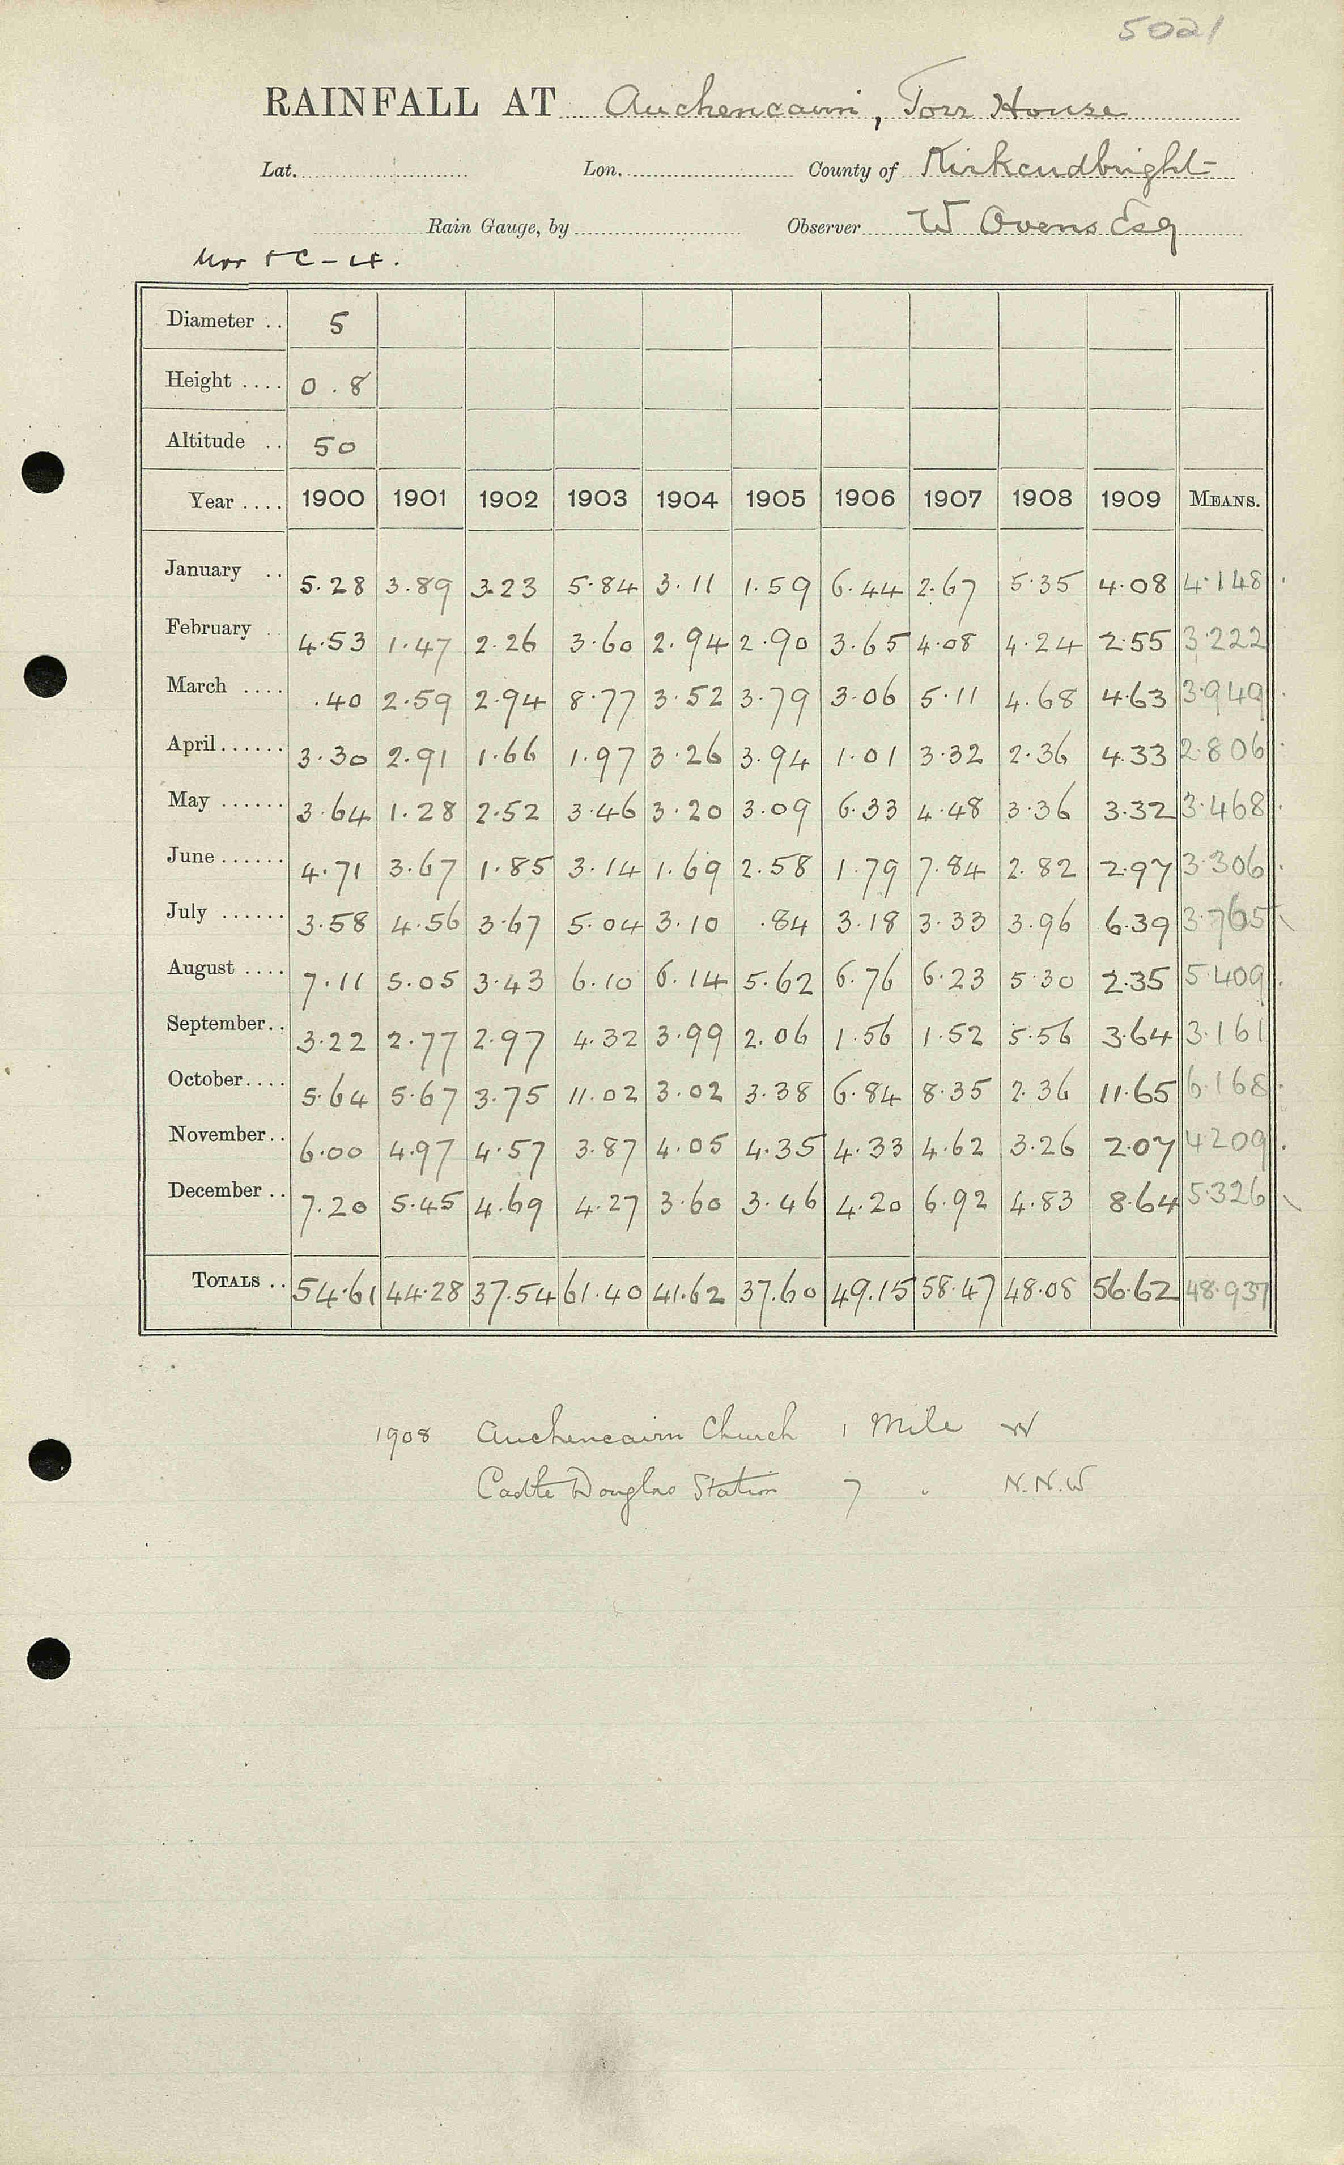 5021
RAINFALL AT Auchencairn, Torr House
Lat. Lon. County of Kirkcudbright
Rain Gauge, by Observer W Ovens Esq
Diameter .. 5
Height .... 0.8
Altitude .. 50
Year .... 1900 1901 1902 1903 1904 1905 1906 1907 1908 1909 MEANS.
January .. 5.28 3.89 3.23 5.84 3.11 1.59 6.44 2.67 5.35 4.08 4.148
February .. 4.53 1.47 2.26 3.60 2.94 2.90 3.65 4.08 4.24 2.55 3.222
March .... .40 2.59 2.94 8.77 3.52 3.79 3.06 5.11 4.68 4.63 3.949
April...... 3.30 2.91 1.66 1.97 3.26 3.94 1.01 3.32 2.36 4.33 2.806
May ...... 3.64 1.28 2.52 3.46 3.20 3.09 6.33 4.48 3.36 3.32 3.468
June...... 4.71 3.67 1.85 3.14 1.69 2.58 1.79 7.84 2.82 2.97 3.306
July ...... 3.58 4.56 3.67 5.04 3.10 .84 3.18 3.33 3.96 6.39 3.765
August .... 7.11 5.05 3.43 6.10 6.14 5.62 6.76 6.23 5.30 2.35 5.409
September.. 3.22 2.77 2.97 4.32 3.99 2.06 1.56 1.52 5.56 3.64 3.161
October.... 5.64 5.67 3.75 11.02 3.02 3.38 6.84 8.35 2.36 11.65 6.168
November.. 6.00 4.97 4.57 3.87 4.05 4.35 4.33 4.62 3.26 2.07 4.209
December .. 7.20 5.45 4.69 4.27 3.60 3.46 4.20 6.92 4.83 8.64 5.326
TOTALS .. 54.61 44.28 37.54 61.40 41.62 37.60 49.15 58.47 48.08 56.62 48.937
1908 Auchencairn Church 1 Mile W
Castle Douglas Station 7 " N.N.W